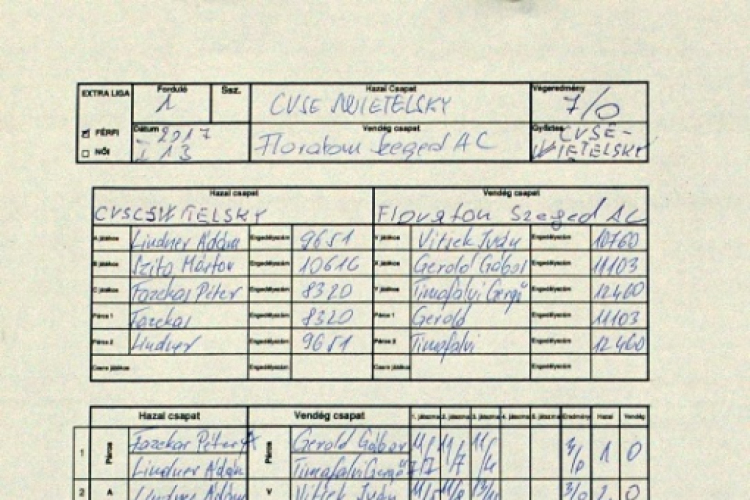 EXTRA LIGA Forduló Ssz. Hazai Csapat Végeredmény
1 CVSE SWIETELSKY 7/0
FÉRFI Dátum Vendég csapat Győztes
2017 CVSE-
NŐI I 13 Floratom Szeged AC SWIETELSKY
Hazai csapat Vendég csapat
Szeged AC
A játékos Lindner Ádám Engedélyszám 9651 V játékos Vitsek Iván Engedélyszám 10760
B játékos Szita Márton Engedélyszám 10616 X játékos Gerold Gábor Engedélyszám 11103
C játékos Fazekas Péter Engedélyszám 8320 Y játékos Timafalvi Gergő Engedélyszám 12460
Páros 1 Fazekas Engedélyszám 8320 Páros 1 Gerold Engedélyszám 11103
Páros 2 Lindner Engedélyszám 9651 Páros 2 Timafalvi Engedélyszám 12460
Csere játékos Engedélyszám Csere játékos Engedélyszám
Hazai csapat Vendég csapat 1. játszma 2. játszma 3. játszma 4. játszma 5. játszma Eredmény Hazai Vendég
1 Páros Fazekas Péter Páros Gerold Gábor 11/ 11/ 11/ 3/0 1 0
Lindner Ádám Timafalvi Gergő 7 7
2 A Lindner Ádám V Vitsek Iván 3/0 2 0